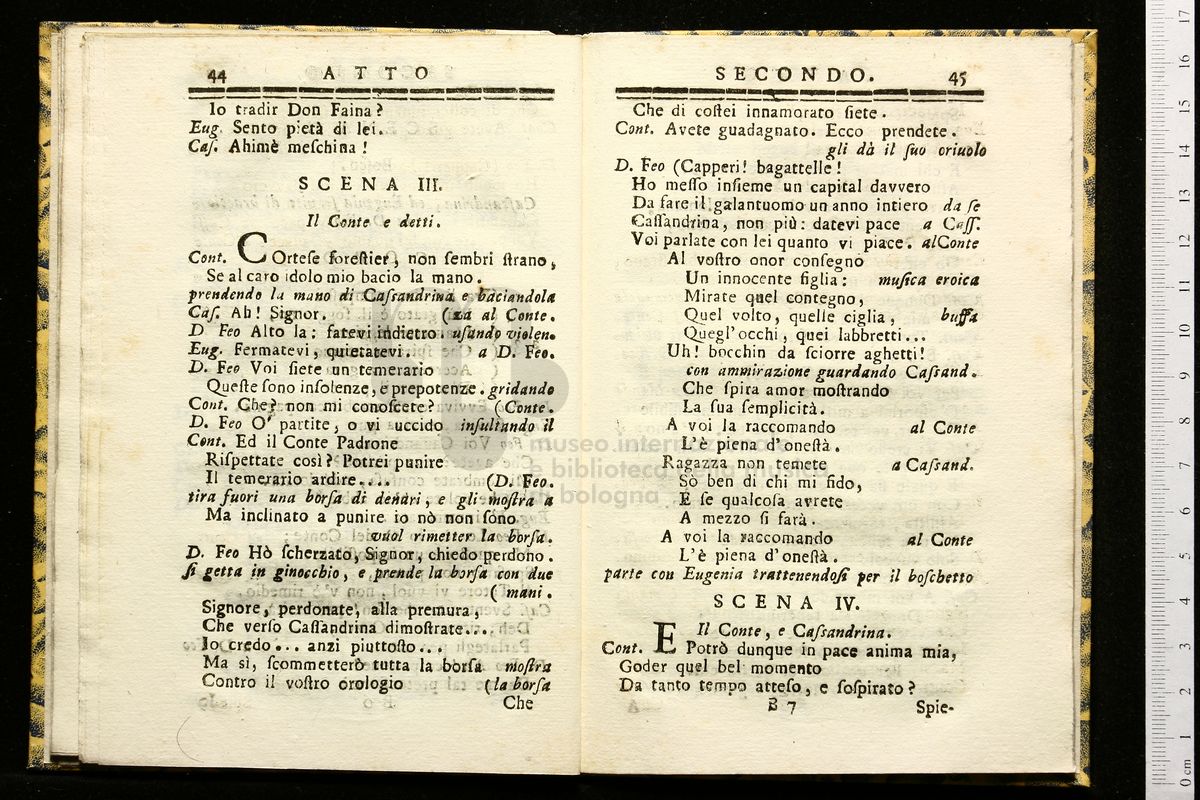 44 ATTO
Io tradir Don Faina?
Eug. Sento pietà di lei.
Caſ. Ahimè meſchina!
SCENA III.
Il Conte e detti.
Cont. COrteſe foreſtier, non ſembri ſtrano,
Se al caro idolo mio bacio la mano.
prendendo la mano di Caſsandrina e baciandola
Caſ. Ah! Signor. (za al Conte.
D Feo Alto la: fatevi indietro. uſando violen-
Eug. Fermatevi, quietatevi. a D. Feo.
D. Feo Voi ſiete un temerario
Queſte ſono inſolenze, e prepotenze. gridando
Cont. Che? non mi conoſcete? (Conte.
D. Feo O' partite, o vi uccido inſultando il
Cont. Ed il Conte Padrone
Riſpettate così? Potrei punire
Il temerario ardire.... (D. Feo.
tira fuori una borſa di denari, e gli moſtra a
Ma inclinato a punire io nò non ſono
vuol rimetter la borſa.
D. Feo Hò ſcherzato, Signor, chiedo perdono.
ſi getta in ginocchio, e prende la borſa con due
(mani.
Signore, perdonate, alla premura,
Che verſo Caſſandrina dimoſtrate...
Io credo... anzi piuttoſto...
Ma sì, ſcommetterò tutta la borſa moſtra
Contro il voſtro orologio (la borſa
Che
SECONDO. 45
Che di coſtei innamorato ſiete.
Cont. Avete guadagnato. Ecco prendete.
gli dà il ſuo oriuolo
D. Feo (Capperi! bagattelle!
Ho meſſo inſieme un capital davvero
Da fare il galantuomo un anno intiero da ſe
Caſſandrina, non più: datevi pace a Caſſ.
Voi parlate con lei quanto vi piace. al Conte
Al voſtro onor conſegno
Un innocente figlia: muſica eroica
Mirate quel contegno,
Quel volto, quelle ciglia, buffa
Quegl'occhi, quei labbretti...
Uh! bocchin da ſciorre aghetti!
con ammirazione guardando Caſsand.
Che ſpira amor moſtrando
La ſua ſemplicità.
A voi la raccomando al Conte
L'è piena d'oneſtà.
Ragazza non temete a Caſsand.
Sò ben di chi mi fido,
E ſe qualcoſa avrete
A mezzo ſi farà.
A voi la raccomando al Conte
L'è piena d'oneſtà.
parte con Eugenia trattenendoſi per il boſchetto
SCENA IV.
Il Conte, e Caſsandrina.
Cont. E Potrò dunque in pace anima mia,
Goder quel bel momento
Da tanto tempo atteſo, e ſoſpirato?
B 7 Spie-
museo internazionale
e biblioteca della musica
di bologna
0 cm 1 2 3 4 5 6 7 8 9 10 11 12 13 14 15 16 17